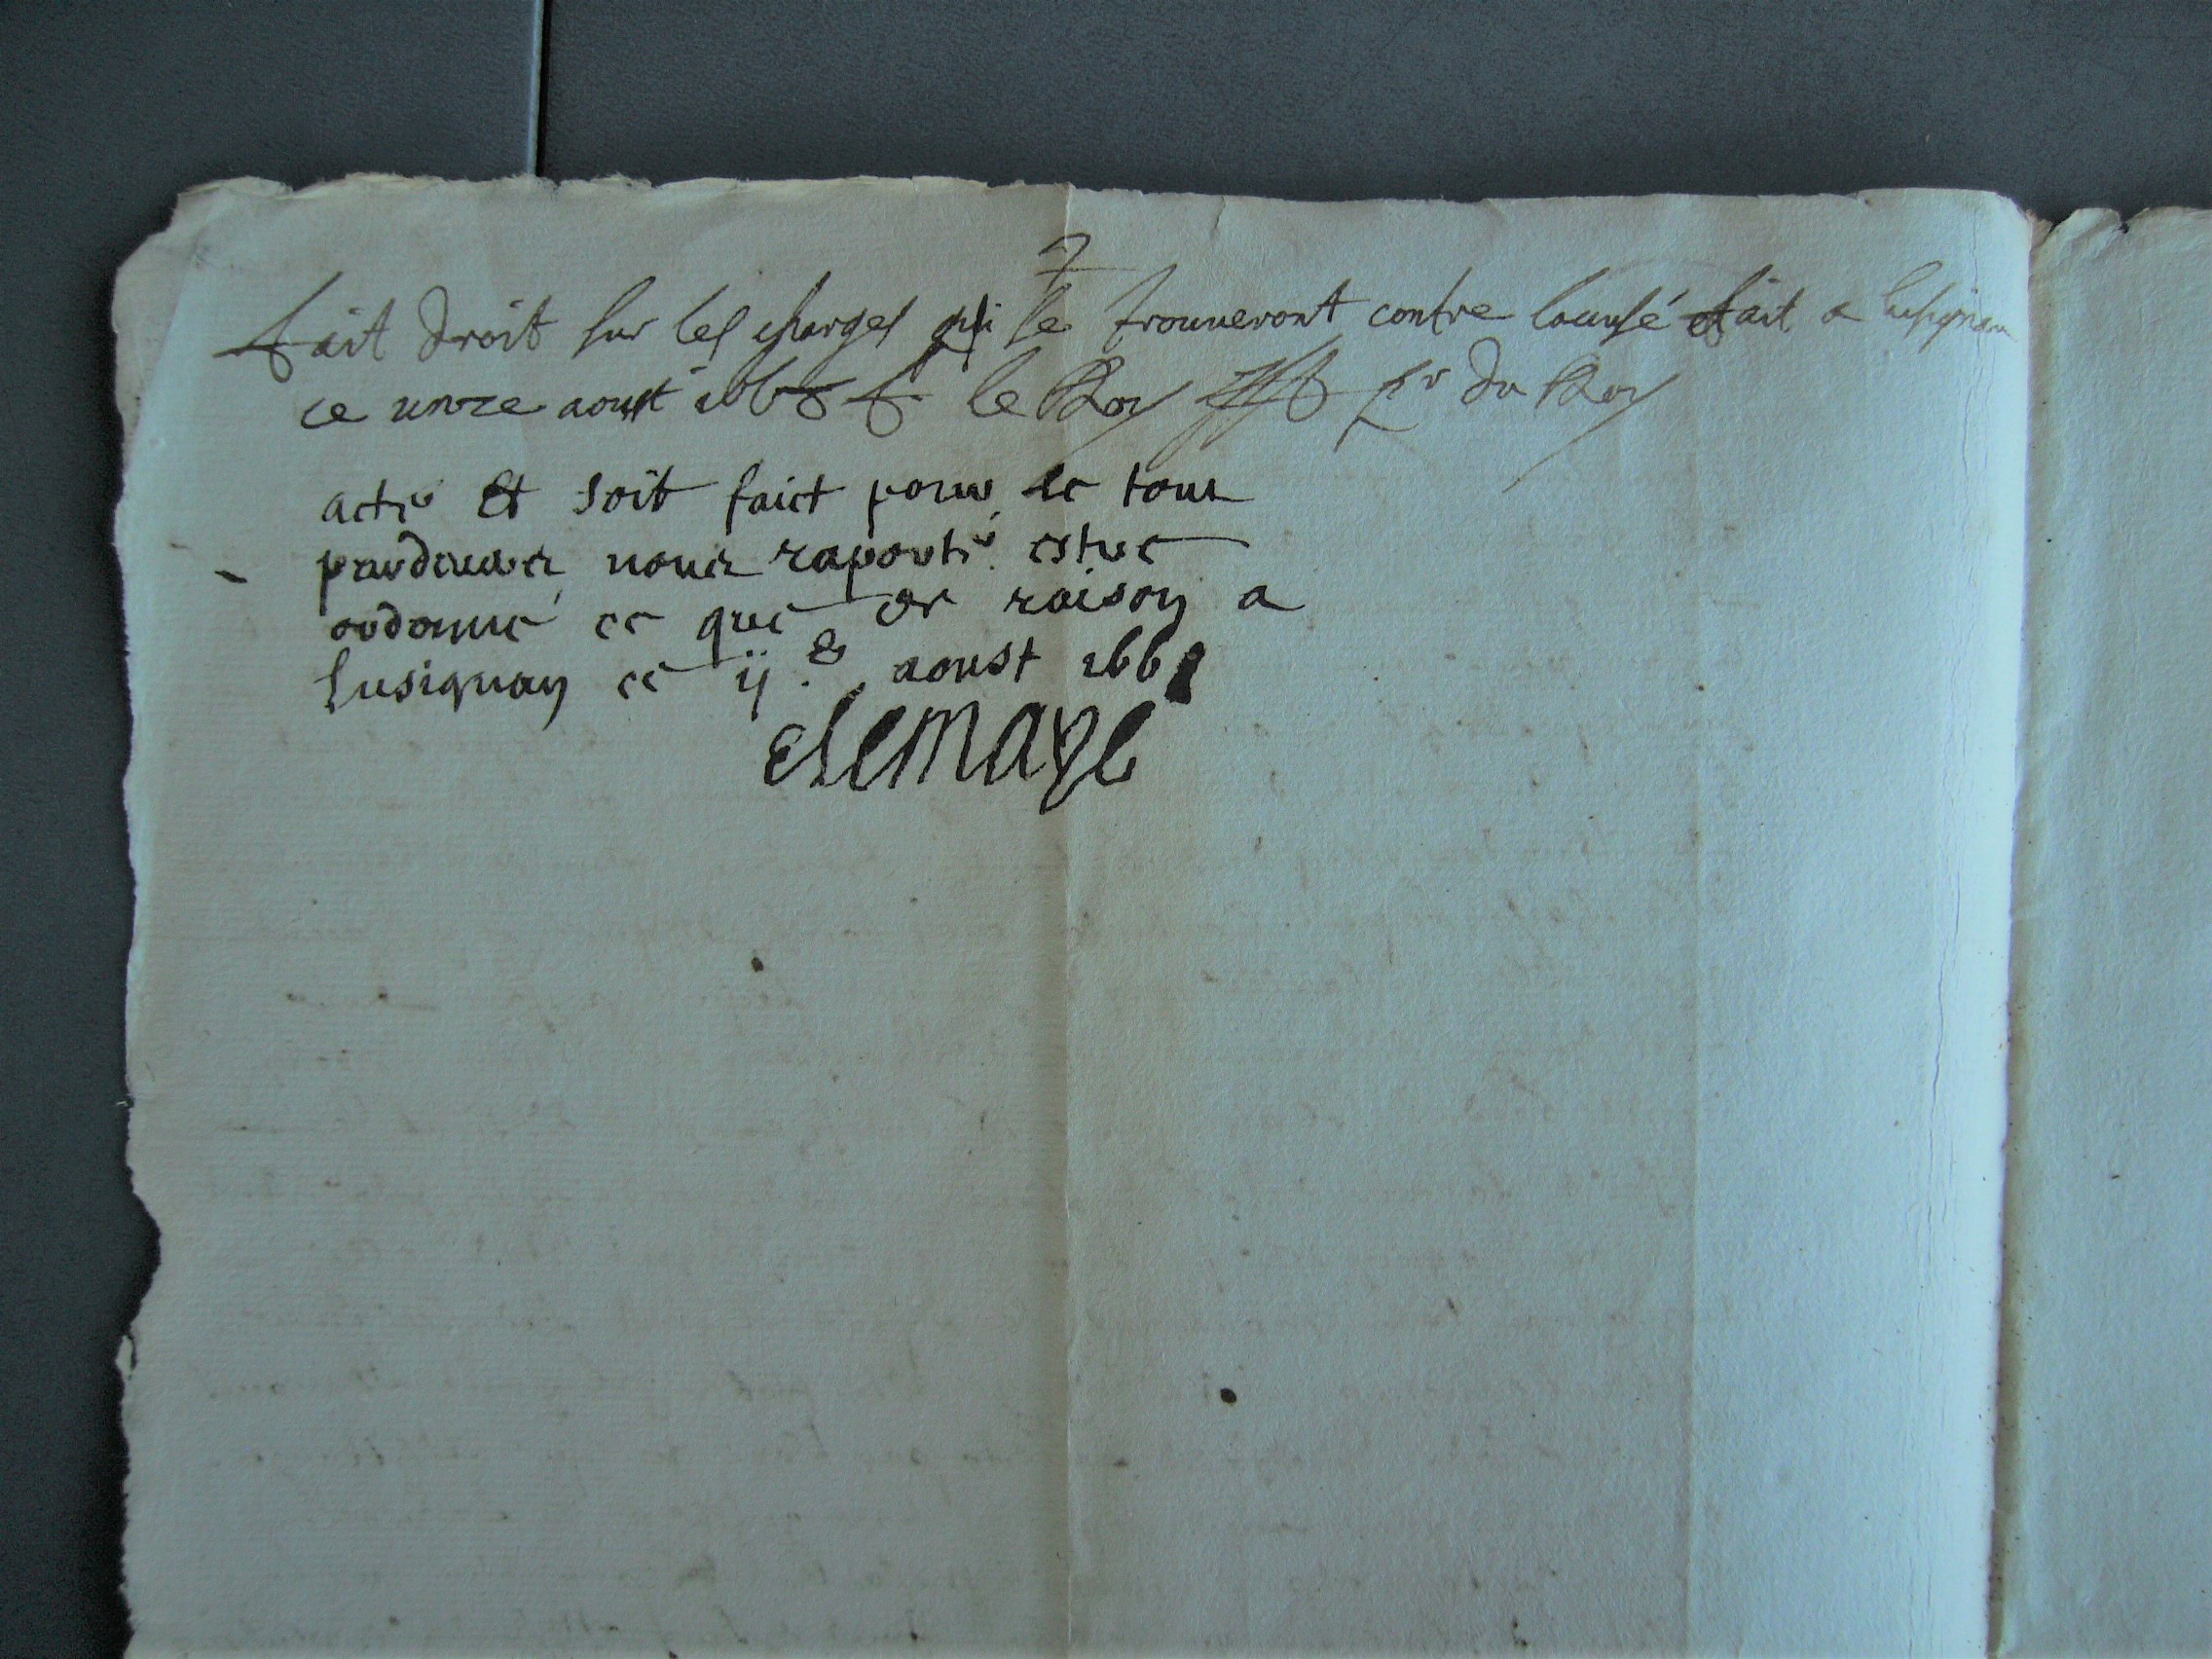 7
fait droit sur les charges qui se trouueront contre lacusé fait a lusignan
ce unze aoust 1668 le Roy pr du Roy
acte Et soit faict pour le tout
pardeuers nous raporté estre
ordonné ce que de raison a
lusignan ce ij.e aoust 1668
clemaye